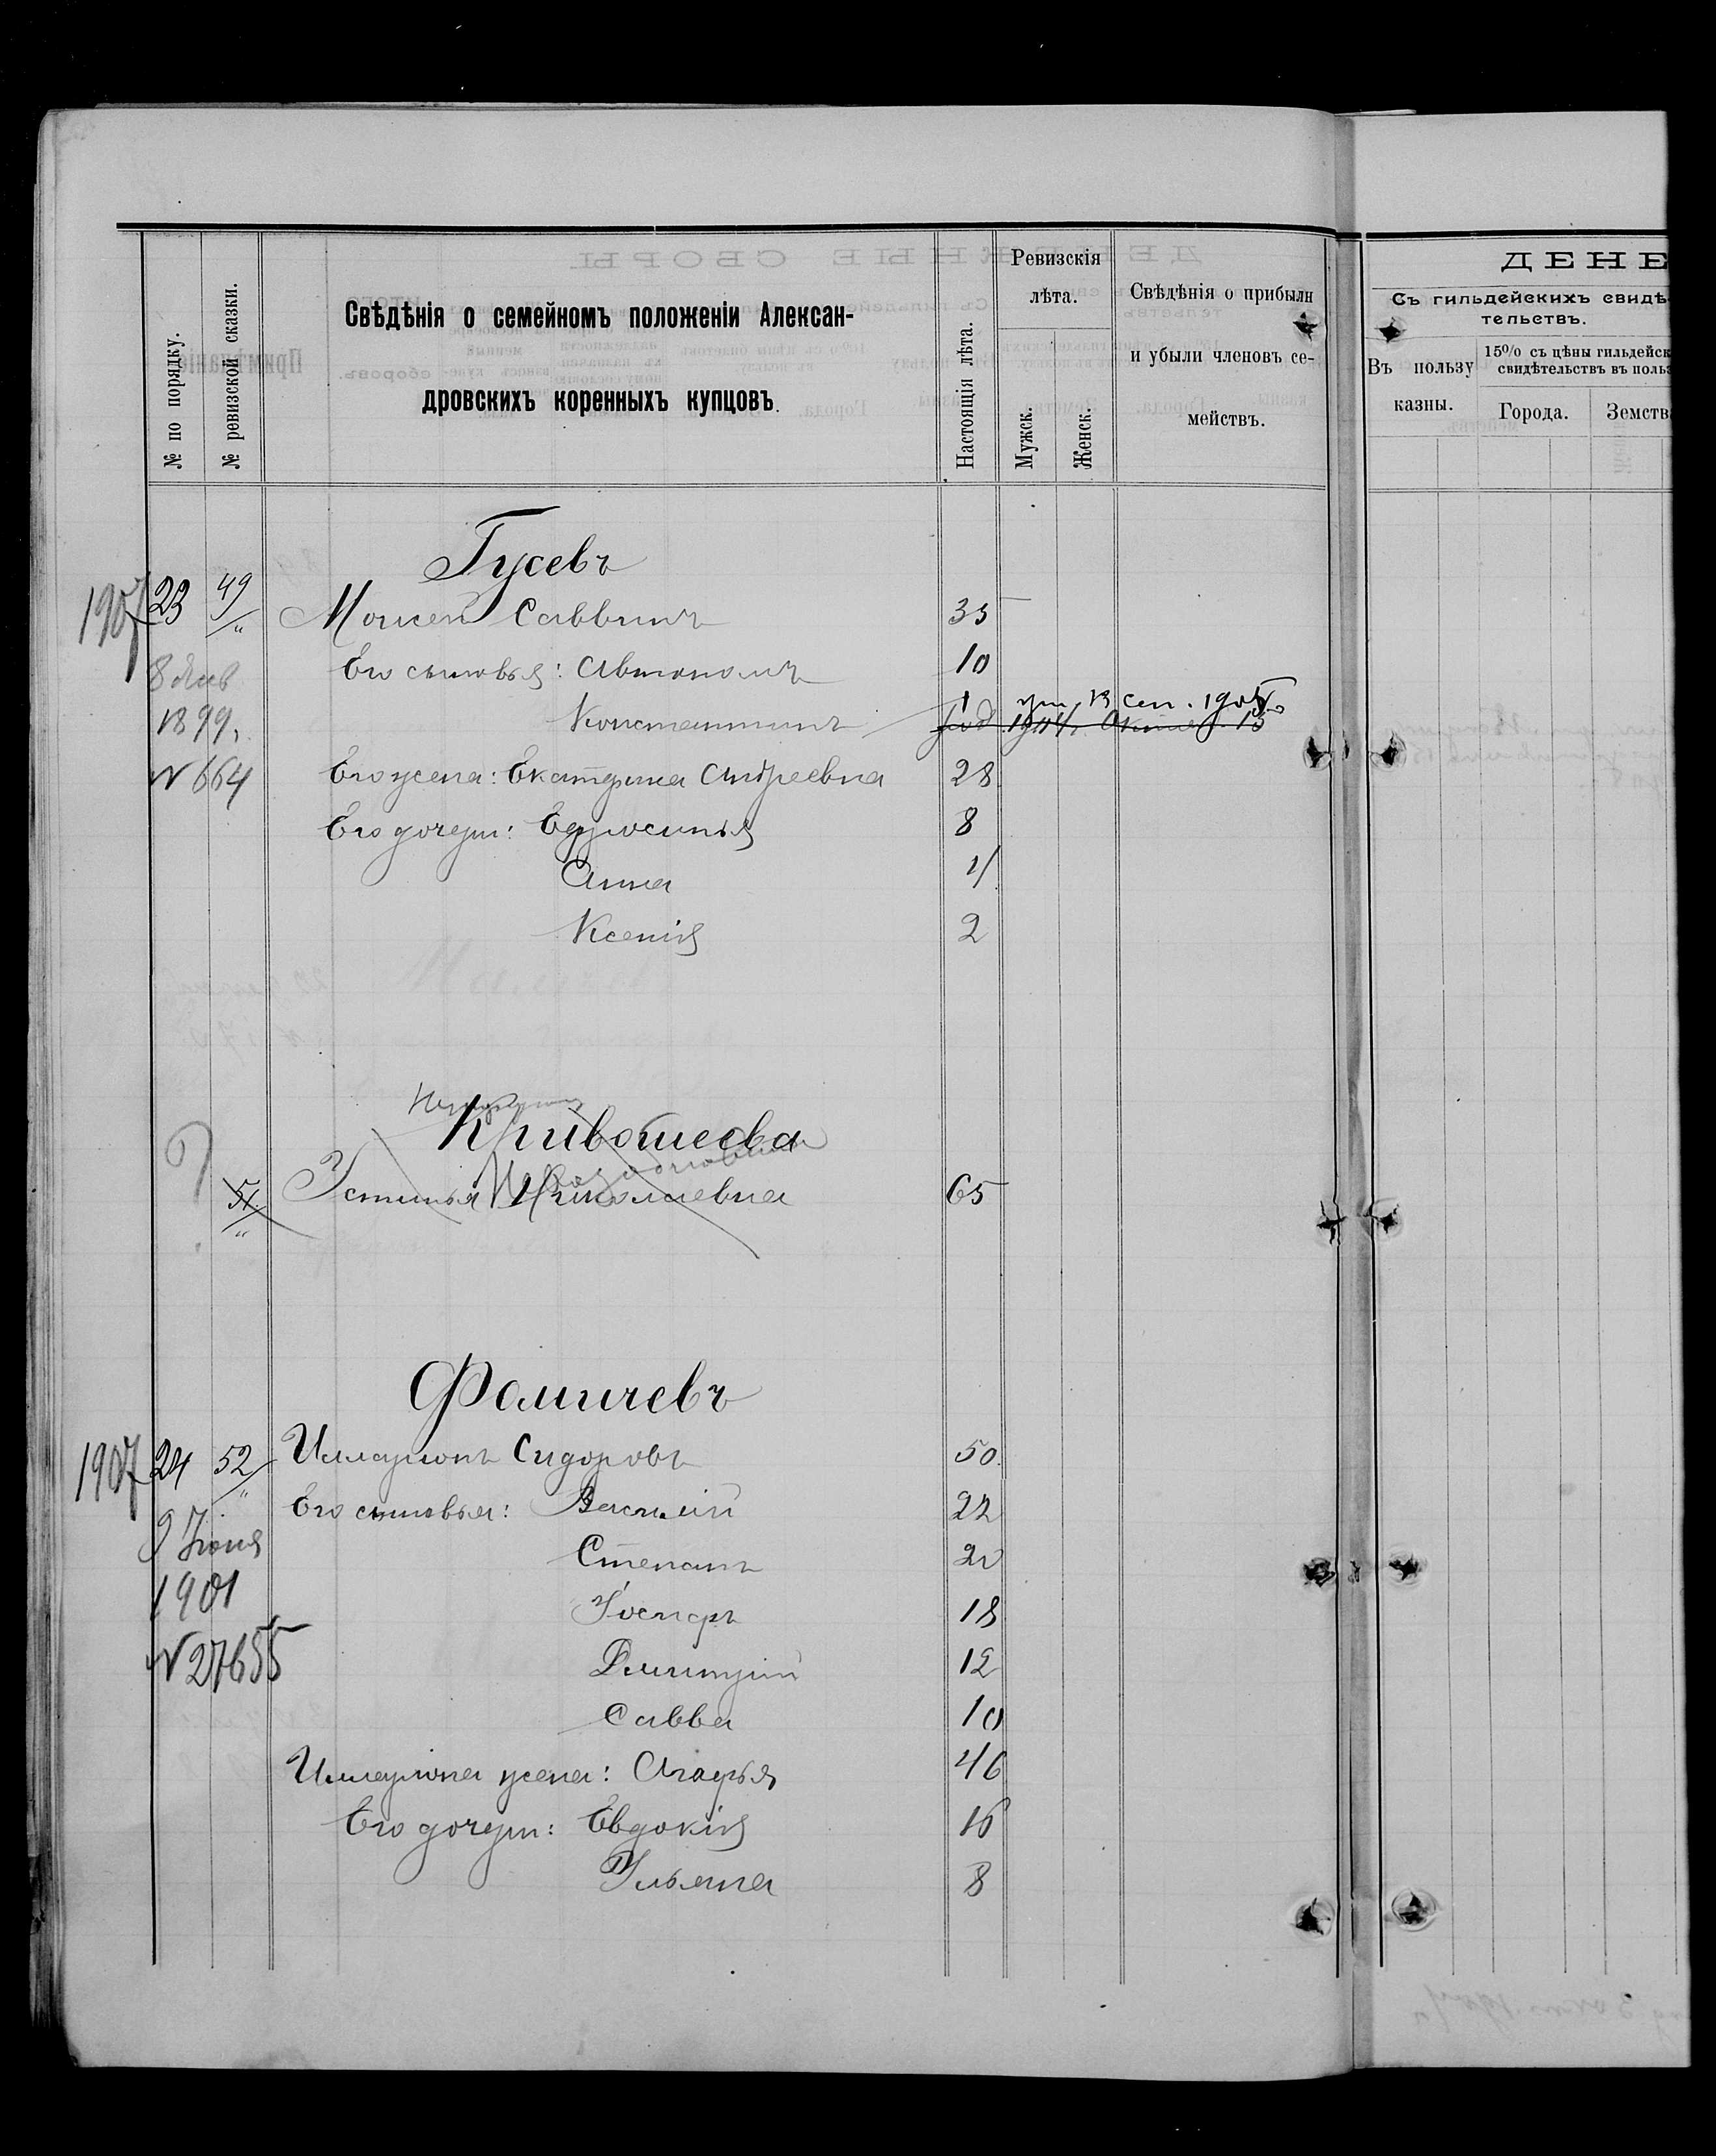 № по порядку.
№ ревизской сказки.
Свѣдѣнія о семейномъ положеніи Алексан-
дровскихъ коренныхъ купцовъ.
Настоящія лѣта.
Ревизскія
лѣта.
Мужск.
Женск.
Свѣдѣнія о прибыли
и убыли членовъ се-
мействъ.
ДЕНЕ
Съ гильдейскихъ свидѣ-
тельствъ.
Въ пользу
казны.
15% съ цѣны гильдейск
свидѣтельствъ въ польз
Города.
Земств
Гусевъ
1907 23 49/„ Моисей Саввинъ 35
8 Янв Его сыновья: Автономъ 10
1899. Константинъ 1 год ум. 13 сен. 1905
1904 Октяб. 13
№ 664 Его жена: Екатерина Андреевна 28
Его дочери: Ефросинья 8
Анна 4
Ксенія 2
Кривошеева
? 51/„ Устинья Николаевна 65
Фомичевъ
1907 24 52/„ Илларіонъ Сидоровъ 50
Его сыновья: Василій 22
9 Іюня
Степанъ 20
1901
Іосифъ 18
№ 27655 Димитрій 12
Савва 10
Илларіона жена: Агафья 46
Его дочери: Евдокія 16
Ульяна 8